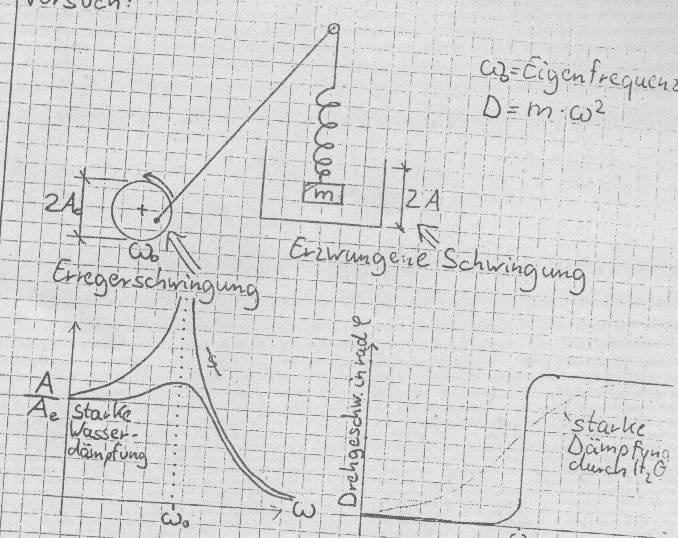 Versuch:
ω₀=Eigenfrequenz
D=m·ω²
m
2A
2Ae
ω₀
Erzwungene Schwingung
Erregerschwingung
A
Ae
starke
Wasser-
dämpfung
ω₀
ω
Drehgeschw. in rad φ
starke
Dämpfung
durch H₂O